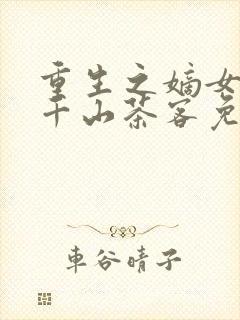 重生之嫡女
千山茶客免
車谷晴子